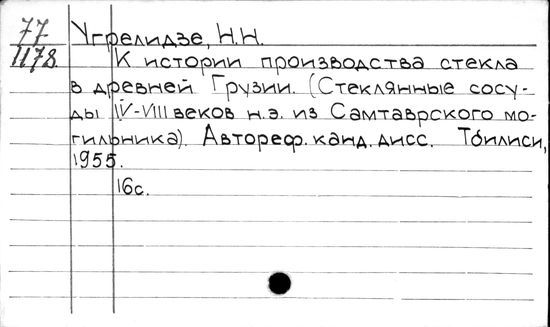 77
1178.
Угрелидзе, Н.Н.
К истории производства стекла
в древней Грузии. (Стеклянные сосу-
ды IV-VIII веков н.э. из Самтаврского мо-
гильника). Автореф. канд. дисс. Тбилиси,
1955.
16с.